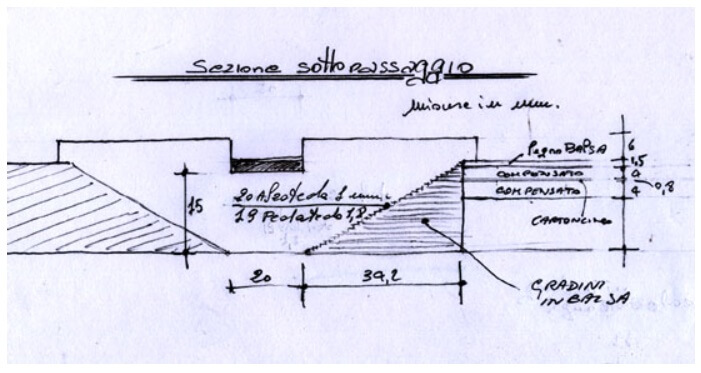 Sezione sottopassaggio
misure in mm.
6
Legno BALSA
1,5
COMPENSATO
4
0,8
COMPENSATO
4
15
20 Alzate da 1 mm.
19 Pedate da 1,8
CARTONCINO
20
34,2
GRADINI
IN BALSA